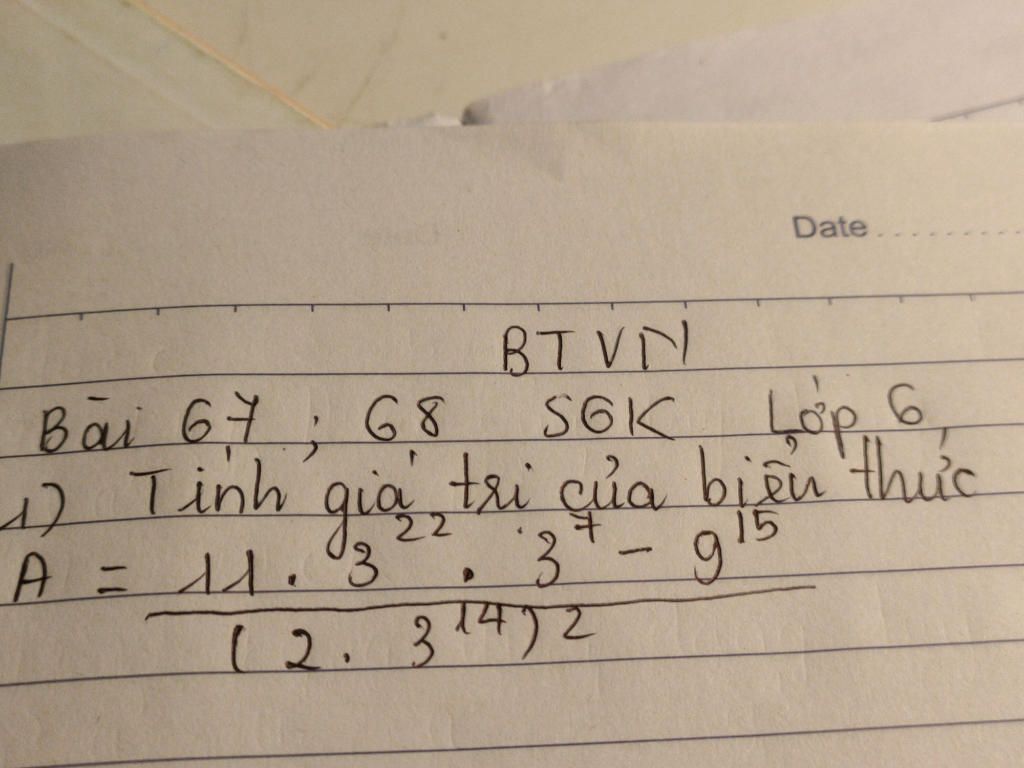 Date ..........
BTVN
Bài 67 ; 68 SGK Lớp 6
1) Tính giá trị của biểu thức
A = \frac{11 . 3^{22} . 3^7 - 9^{15}}{(2 . 3^{14})^2}